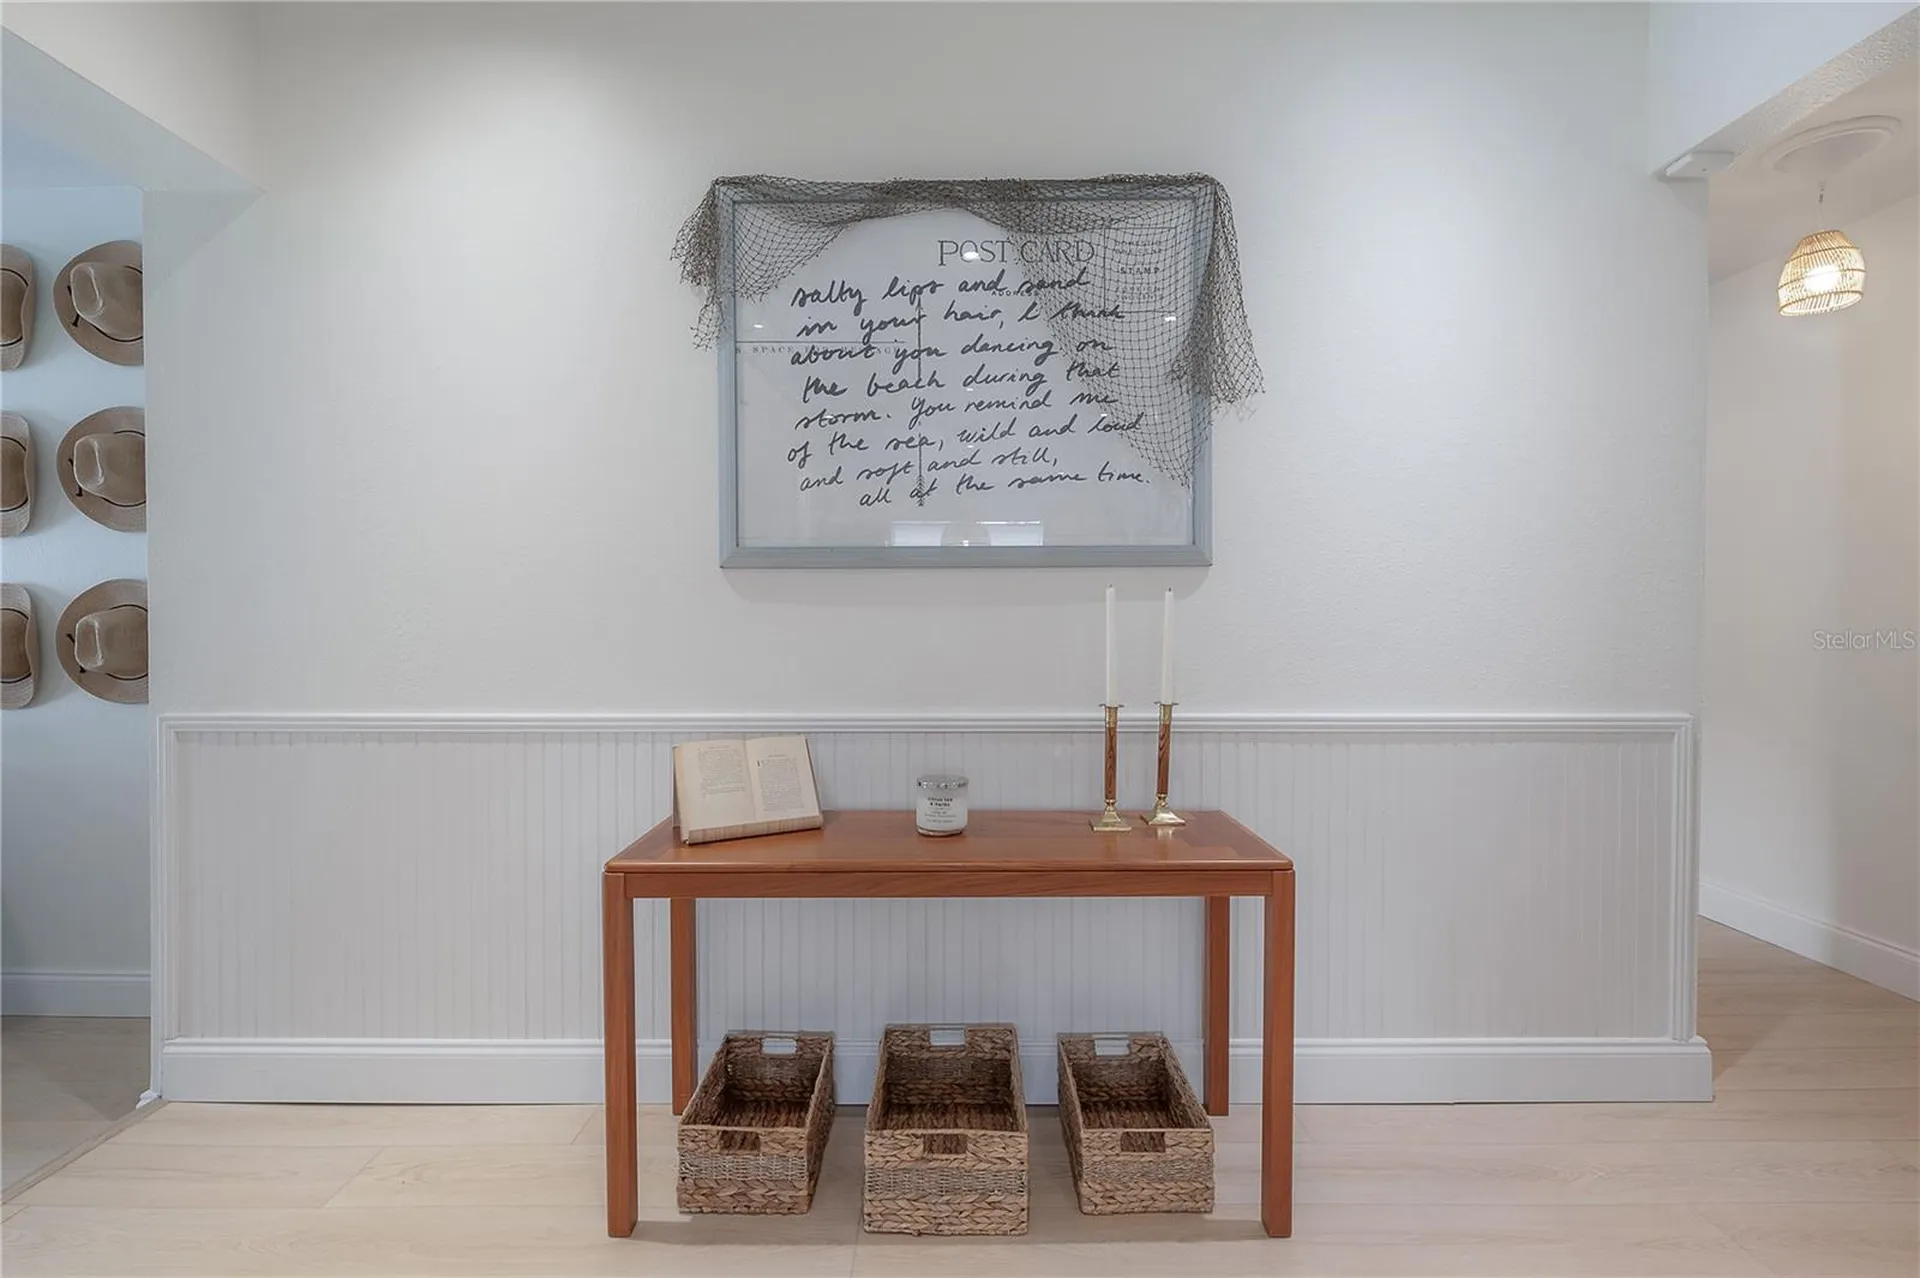 POST CARD
STAMP
ADDRESS
SPACE FOR MESSAGE
salty lips and sand
in your hair, I think
about you dancing on
the beach during that
storm. You remind me
of the sea, wild and loud
and soft and still,
all at the same time.
Stellar MLS